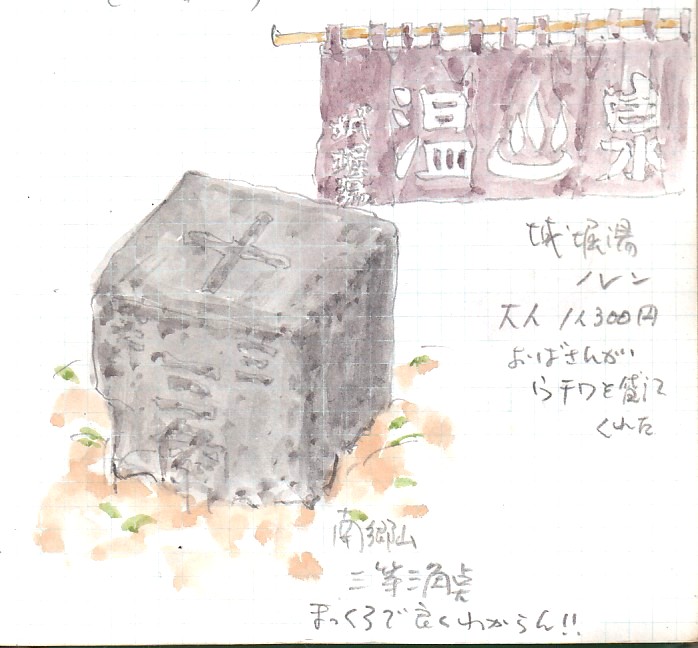 温 泉
城堀湯
城堀湯
ノレン
大人 1人300円
おばさんが
ウチワを貸して
くれた
南郷山
三等三角点
まっくろで良くわからん!!